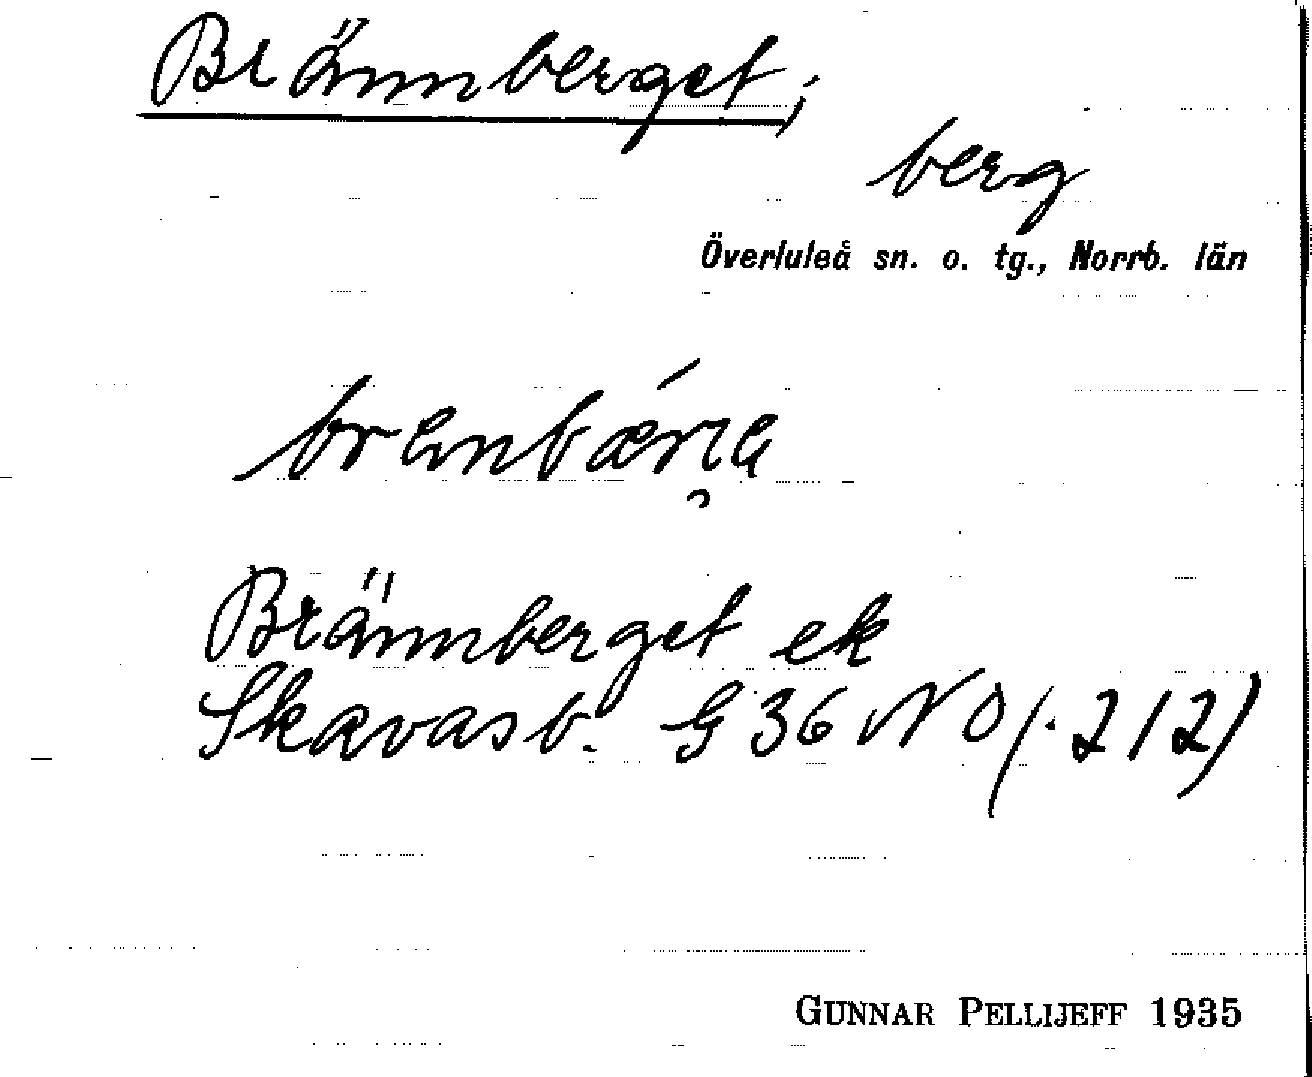 Brännberget,
berg
Överluleå sn. o. tg., Norrb. län
Brännberget ek
Skavasb. G 36 NO (. 212)
GUNNAR PELLIJEFF 1935